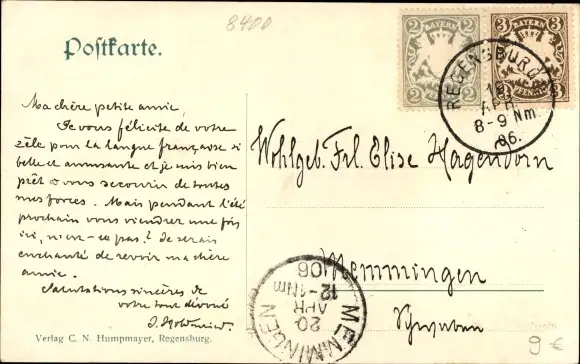 8400
Postkarte.
2 BAYERN 2
2 2
3 BAYERN 3
3 PFENNIG 3
REGENSBURG
19
APR
8-9 Nm
06.
Ma chère petite amie,
Je vous félicite de votre
zèle pour la langue française si
belle et amusante et je suis bien
prêt à vous secourir de toutes
mes forces. Mais pendant l'été
prochain vous viendrez une fois
ici, n'est-ce pas? Je serais
enchanté de revoir ma chère
amie.
Salutations sincères de
votre tout dévoué
Wohlgeb. Frl. Elise Hagendorn
Memmingen
Schwaben
MEMMINGEN
20
APR
12-1Nm
06
Verlag C. N. Humpmayer, Regensburg.
9 €